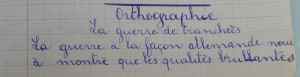 Orthographie
La guerre de tranchées
La guerre à la façon allemande nous
a montré que les qualités brillantes